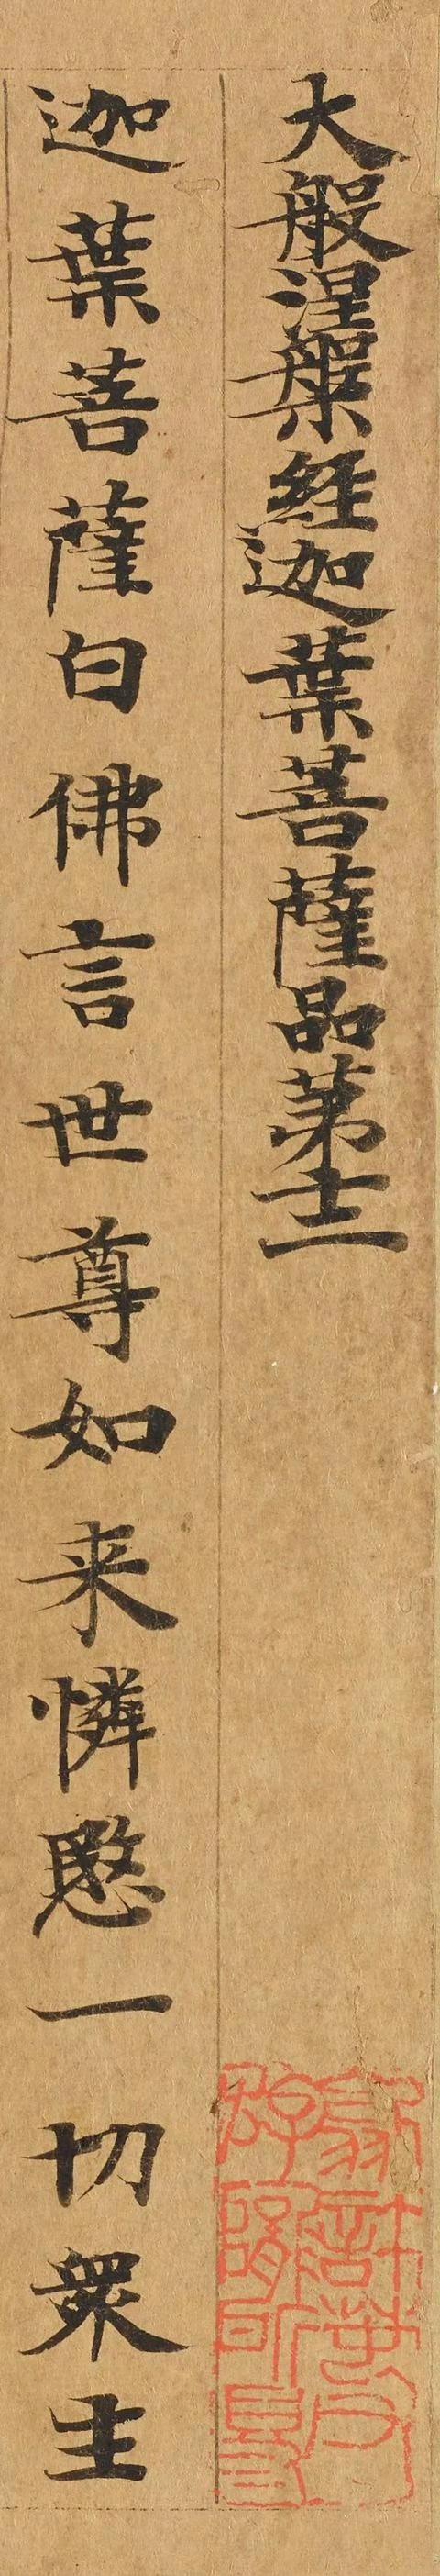 大般涅槃經迦葉菩薩品第十二
迦葉菩薩白佛言世尊如来憐愍一切衆生